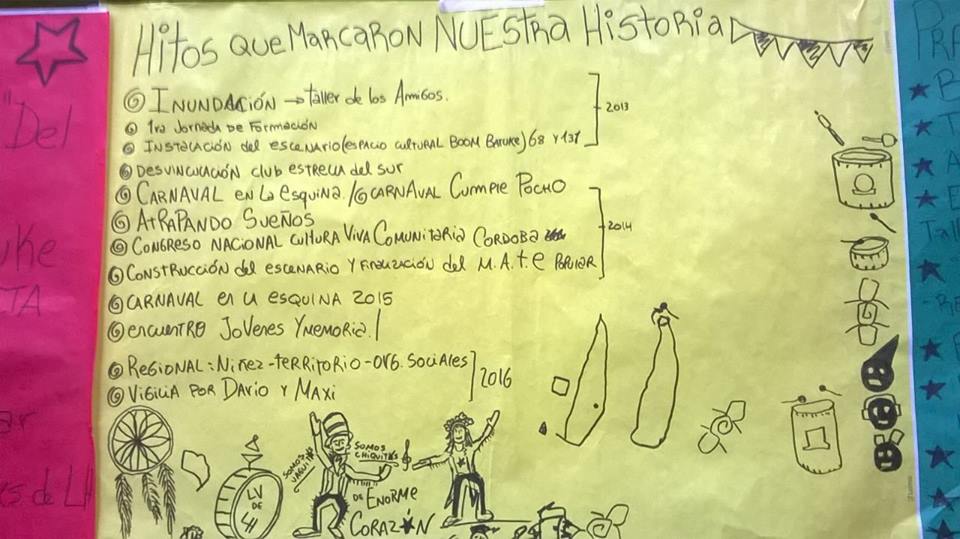 Hitos que Marcaron Nuestra Historia
Inundación → taller de los Amigos.
1ra Jornada de Formación
Instalación del escenario (espacio cultural BOOM BATUKE) 68 y 131
2013
Desvinculación club estrella del sur
Carnaval en la esquina / Carnaval Cumple Pocho
Atrapando Sueños
Congreso Nacional Cultura Viva Comunitaria Cordoba
Construcción del escenario y finalización del M.A.T.E Popular
2014
Carnaval en la esquina 2015
encuentro Jovenes y memoria
Regional: Niñez-territorio-org. sociales
Vigilia por Dario y Maxi
2016
Somos
Somos chiquit★s
de Enorme
Corazón
LV
DE
LH
Del
uke
TA
ar
es de LH